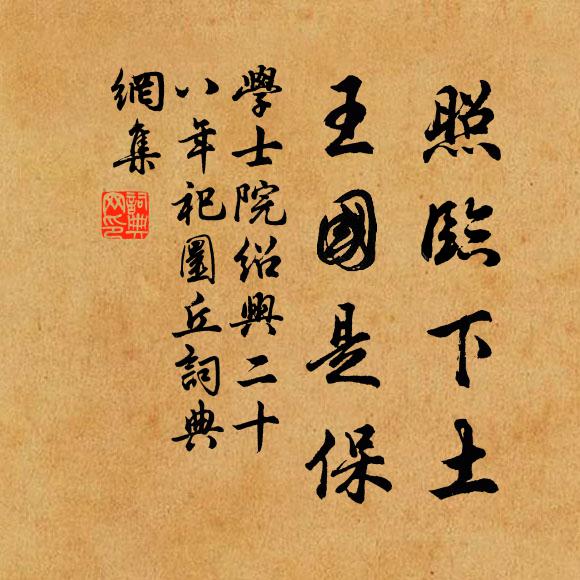 照臨下土
王國是保
學士院紹興二十
八年祀圜丘詞典
網集
詞典
网印